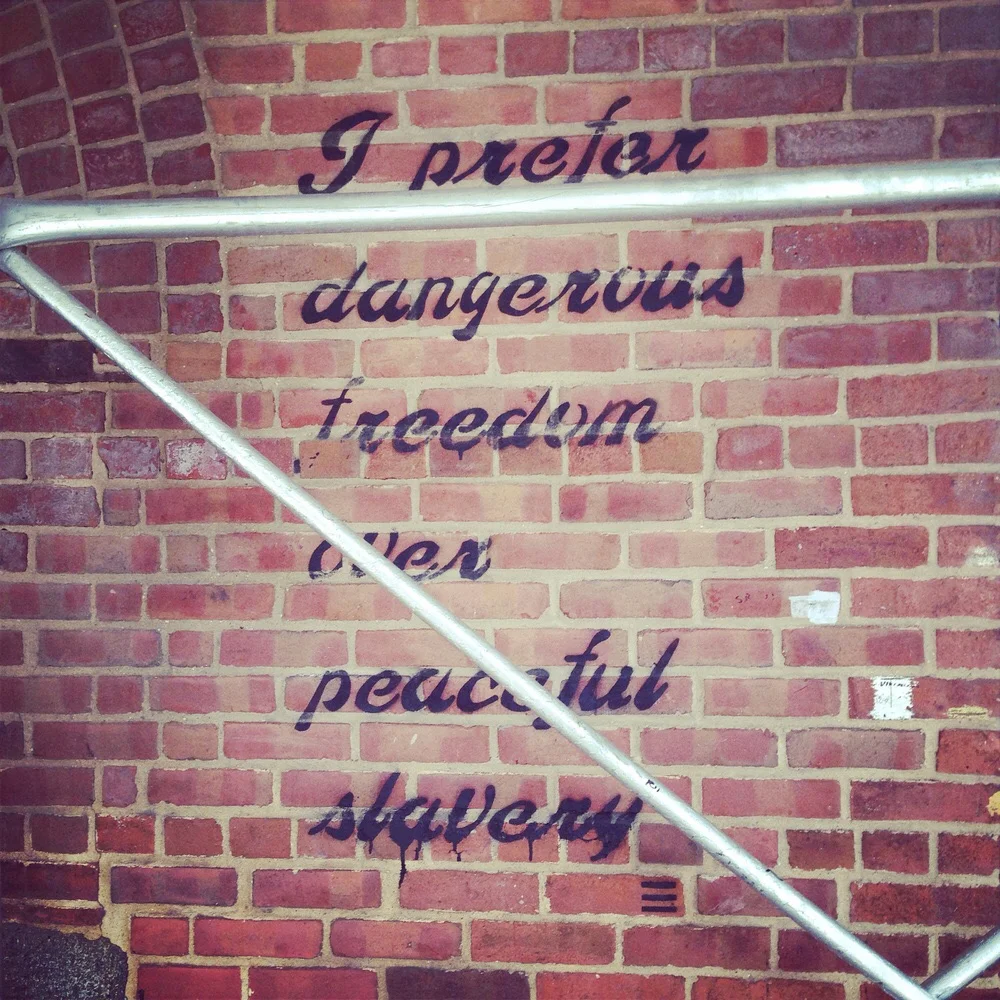 I prefer
dangerous
freedom
over
peaceful
slavery